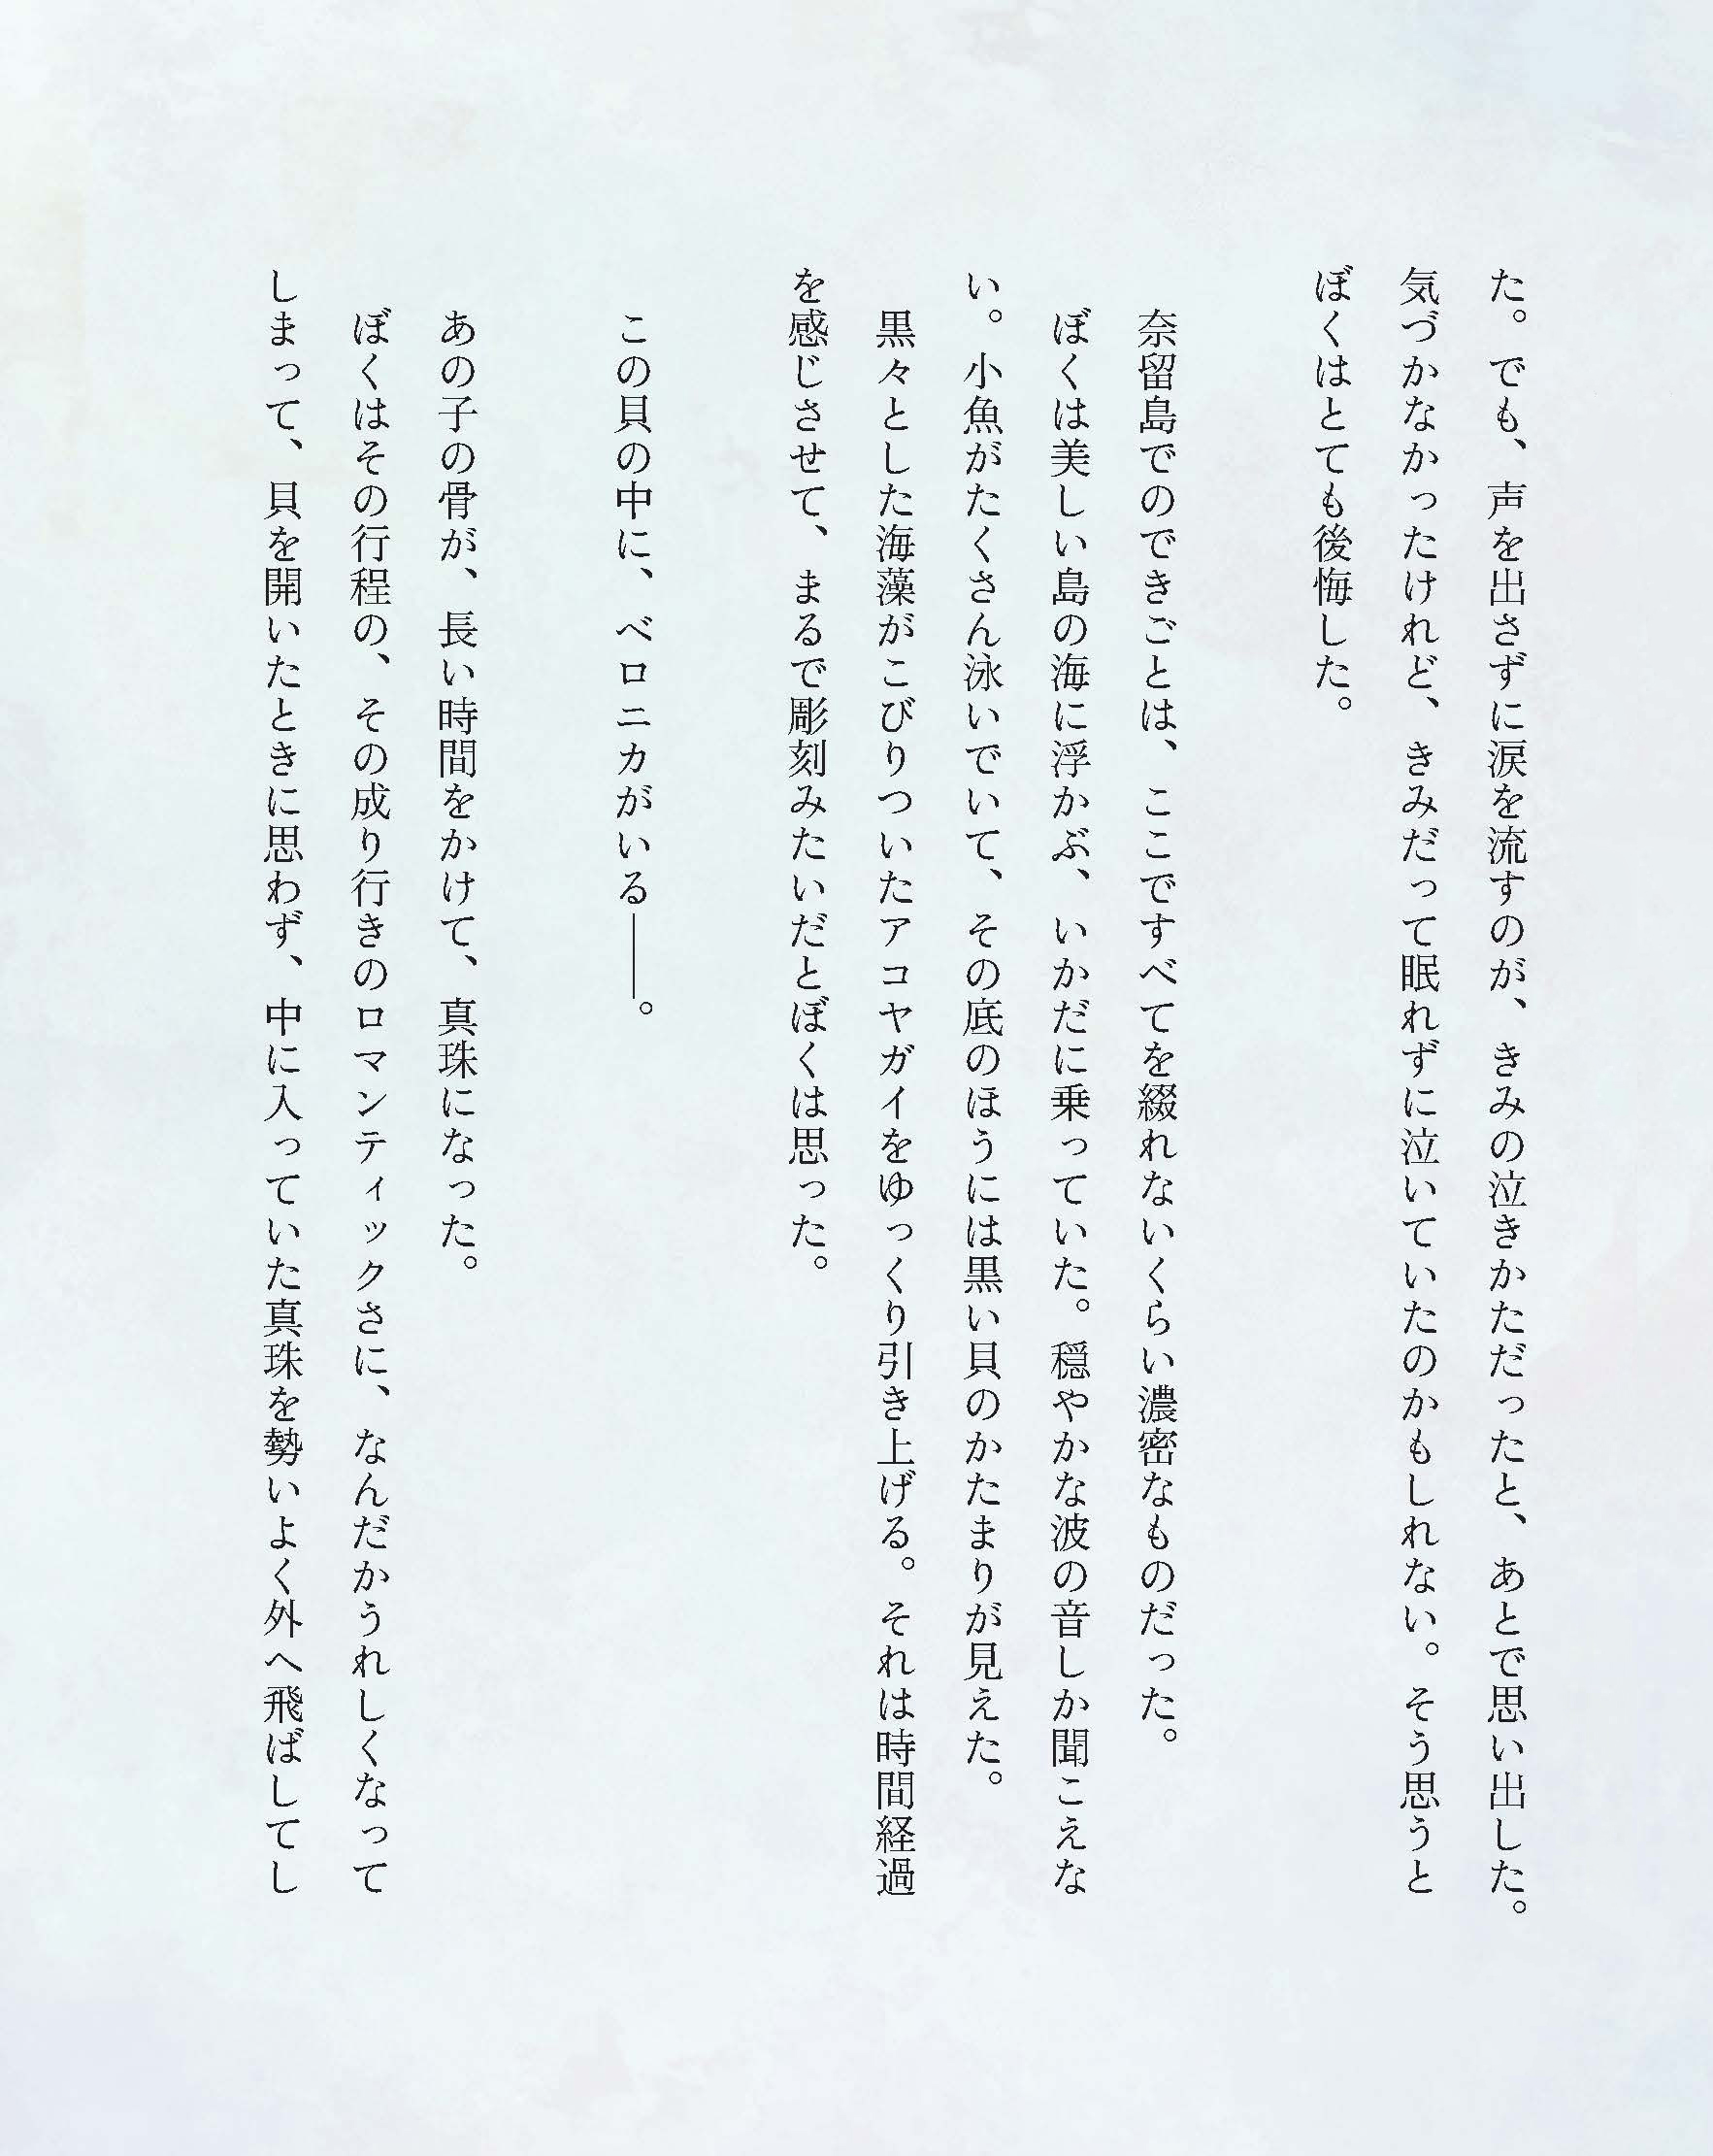 た。でも、声を出さずに涙を流すのが、きみの泣きかただったと、あとで思い出した。
気づかなかったけれど、きみだって眠れずに泣いていたのかもしれない。そう思うと
ぼくはとても後悔した。
奈留島でのできごとは、ここですべてを綴れないくらい濃密なものだった。
ぼくは美しい島の海に浮かぶ、いかだに乗っていた。穏やかな波の音しか聞こえな
い。小魚がたくさん泳いでいて、その底のほうには黒い貝のかたまりが見えた。
黒々とした海藻がこびりついたアコヤガイをゆっくり引き上げる。それは時間経過
を感じさせて、まるで彫刻みたいだとぼくは思った。
この貝の中に、ベロニカがいる――。
あの子の骨が、長い時間をかけて、真珠になった。
ぼくはその行程の、その成り行きのロマンティックさに、なんだかうれしくなって
しまって、貝を開いたときに思わず、中に入っていた真珠を勢いよく外へ飛ばしてし